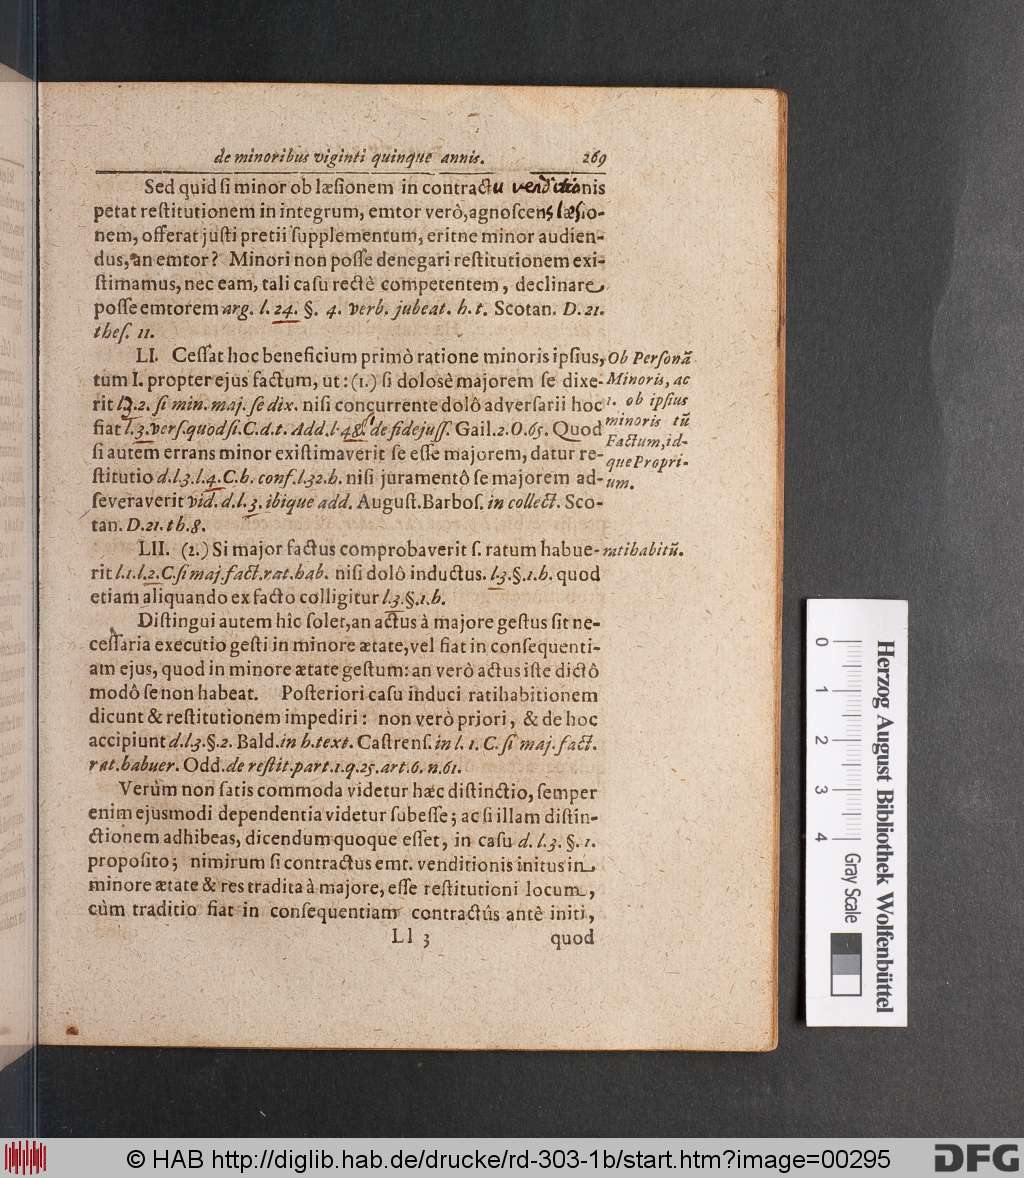 de minoribus viginti quinque annis. 269
Sed quid ſi minor ob læſionem in contractu venditionis
petat reſtitutionem in integrum, emtor verò, agnoſcens læſio-
nem, offerat juſti pretii ſupplementum, eritne minor audien-
dus, an emtor? Minori non poſſe denegari reſtitutionem exi-
ſtimamus, nec eam, tali caſu rectè competentem, declinare
poſſe emtorem arg. l. 24. §. 4. verb. jubeat. h. t. Scotan. D. 21.
theſ. 11.
LI. Ceſſat hoc beneficium primò ratione minoris ipſius,
tum I. propter ejus factum, ut: (1.) ſi dolosè majorem ſe dixe-
rit l. 2. ſi min. maj. ſe dix. niſi concurrente dolô adverſarii hoc
fiat l. 3. verſ. quod ſi. C. d. t. Add. l. 48. de fidejuſſ. Gail. 2. O. 65. Quod
ſi autem errans minor exiſtimaverit ſe eſſe majorem, datur re-
ſtitutio d. l. 3. l. 4. C. h. conf. l. 32. h. niſi juramentô ſe majorem ad-
ſeveraverit vid. d. l. 3. ibique add. Auguſt. Barboſ. in collect. Sco-
tan. D. 21. th. 8.
Ob Perſonã
Minoris, ac
1. ob ipſius
minoris tũ
Factum, id-
que Propri-
um.
LII. (2.) Si major factus comprobaverit ſ. ratum habue-
rit l. 1. l. 2. C. ſi maj. fact. rat. hab. niſi dolô inductus. l. 3. §. 1. h. quod
etiam aliquando ex facto colligitur l. 3. §. 1. h.
ratihabitũ.
Diſtingui autem hîc ſolet, an actus à majore geſtus ſit ne-
ceſſaria executio geſti in minore ætate, vel fiat in conſequenti-
am ejus, quod in minore ætate geſtum: an verò actus iſte dictô
modô ſe non habeat. Poſteriori caſu induci ratihabitionem
dicunt & reſtitutionem impediri: non verò priori, & de hoc
accipiunt d. l. 3. §. 2. Bald. in h. text. Caſtrenſ. in l. 1. C. ſi maj. fact.
rat. habuer. Odd. de reſtit. part. 1. q. 25. art. 6. n. 61.
Verùm non ſatis commoda videtur hæc diſtinctio, ſemper
enim ejusmodi dependentia videtur ſubeſſe; ac ſi illam diſtin-
ctionem adhibeas, dicendum quoque eſſet, in caſu d. l. 3. §. 1.
propoſito; nimirum ſi contractus emt. venditionis initus in
minore ætate & res tradita à majore, eſſe reſtitutioni locum,
cùm traditio fiat in conſequentiam contractûs antè initi,
Ll 3 quod
0 1 2 3 4 Gray Scale
Herzog August Bibliothek Wolfenbüttel
© HAB http://diglib.hab.de/drucke/rd-303-1b/start.htm?image=00295
DFG